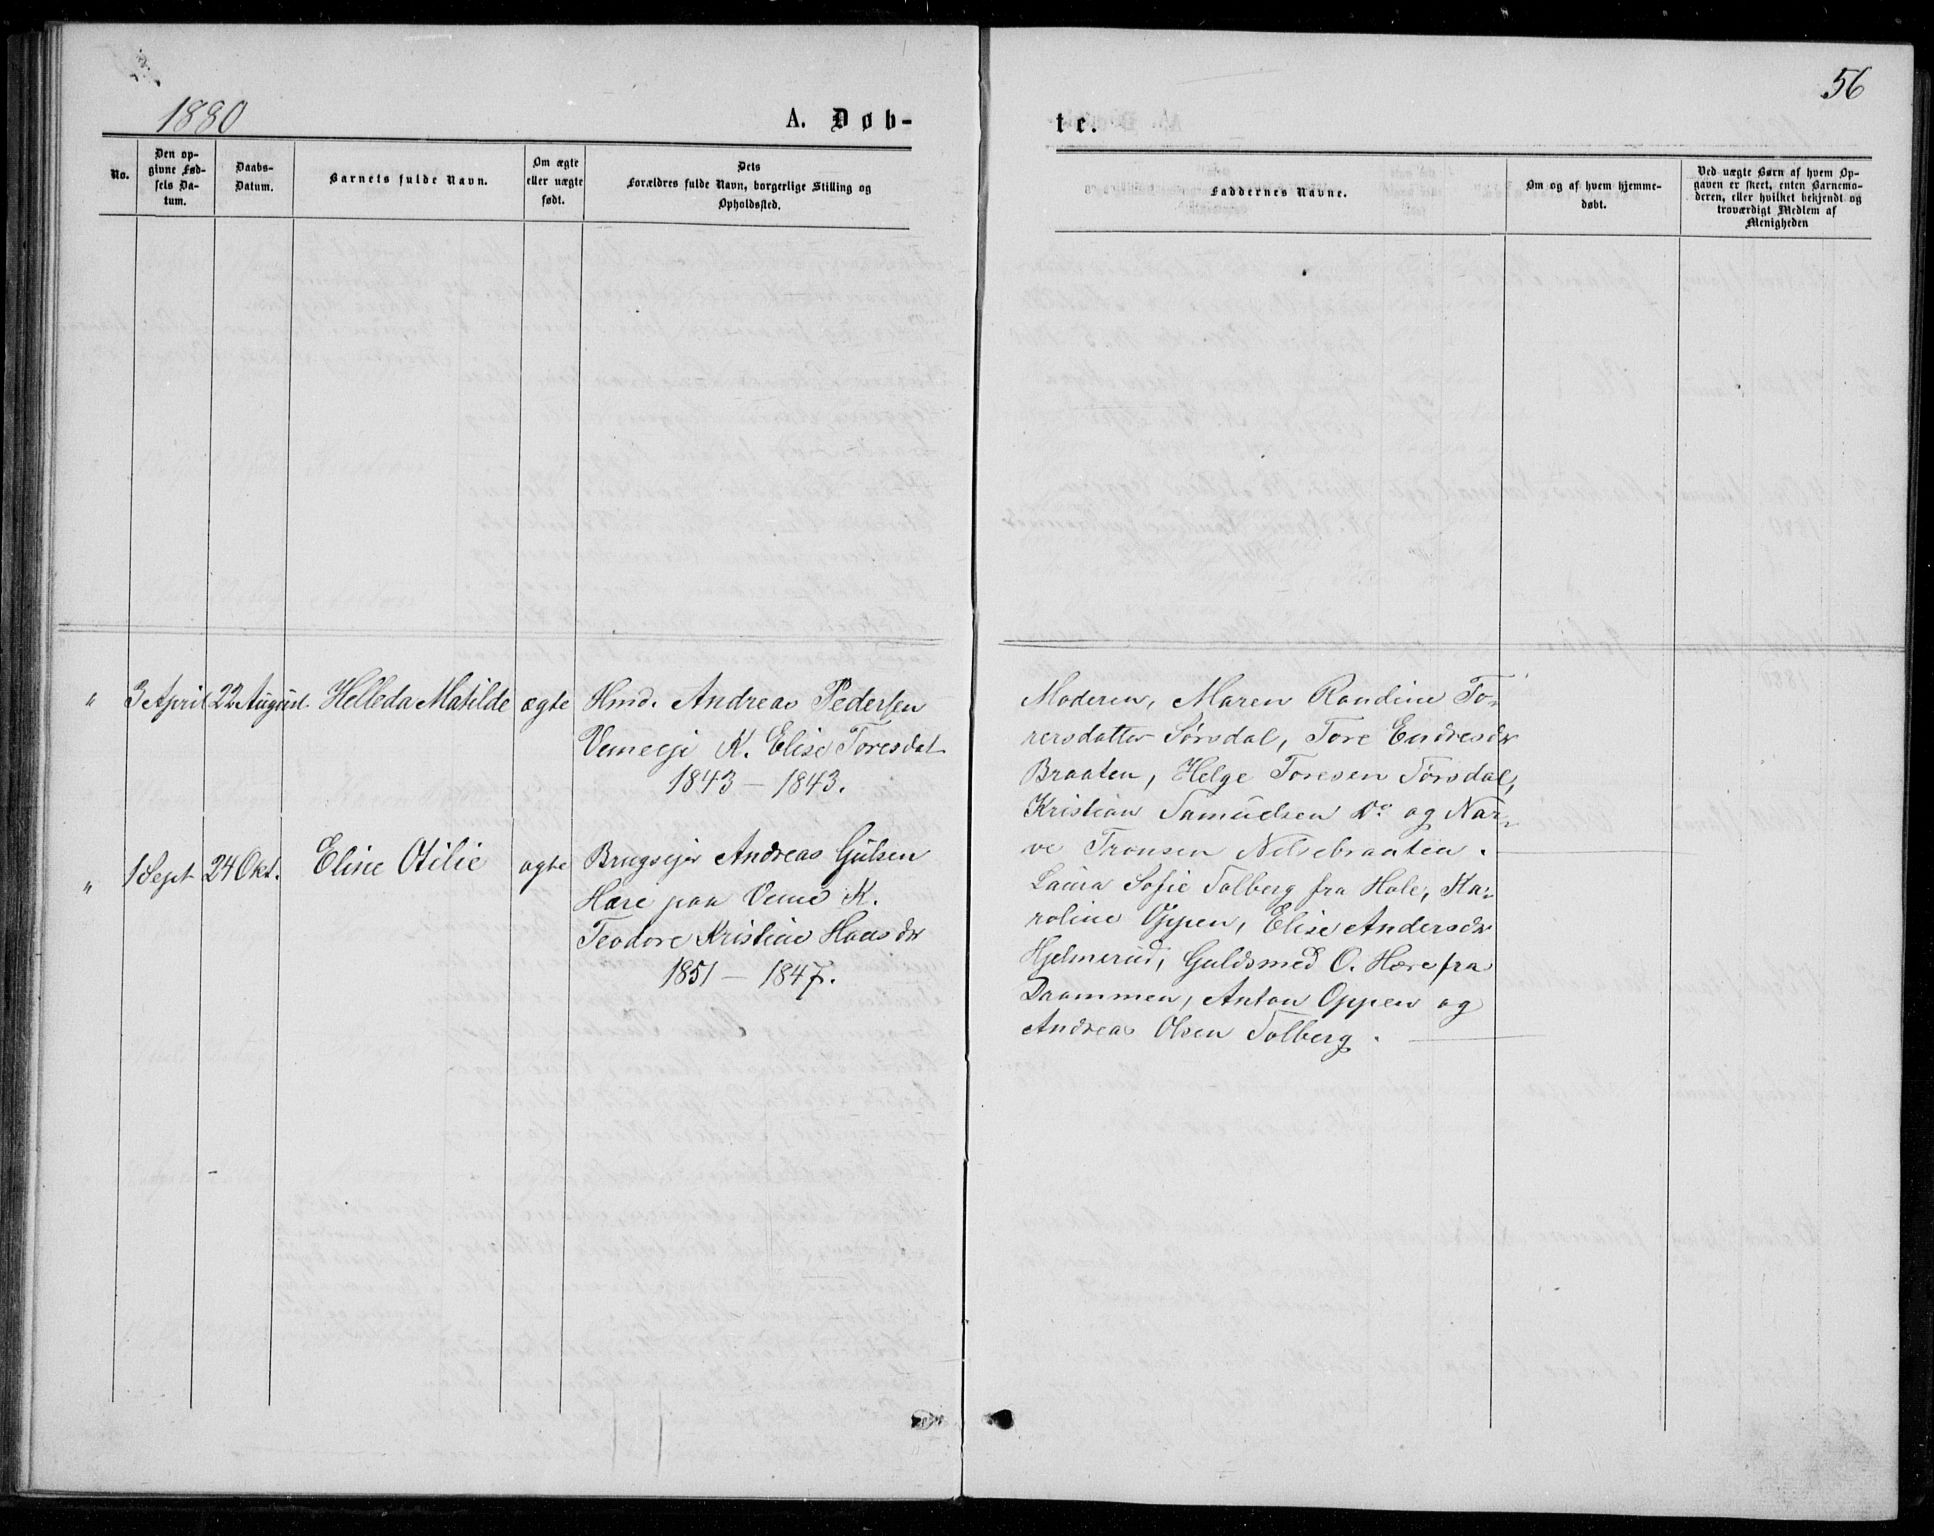 1880
A. Døb-
te.
56
No.
Den op-
givne Fød-
sels Da-
tum.
Daabs-
Datum.
Barnets fulde Navn.
Om ægte
eller uægte
født.
Dets
Forældres fulde Navn, borgerlige Stilling og
Opholdssted.
Faddernes Navne.
Om og af hvem hjemme-
døbt.
Ved uægte Børn af hvem Op-
gaven er skeet, enten Barnemo-
deren, eller hvilket bekjendt og
troværdigt Medlem af
Menigheden
" 3 April 22 August. Helleda Matilde ægte
Hmd. Andreas Pedersen
Vemeeje K. Elise Toresdat
1843 – 1843.
Moderen, Maren Randine To-
rersdatter Sørsdal, Tore Endresdr
Braaten, Helge Toresen Sørsdal,
Kristian Samuelsen Do og Nar-
ve Tronsen Nilsebraaten.
" 1 Sept 24 Okt. Eline Otilie ægte
Brugsejer Andreas Gulsen
Hære paa Veme K.
Teodore Kristine Hansdr
1851 – 1847.
Laura Sofie Solberg fra Hole, Ka-
roline Oppen, Elise Andersdr
Hjelmerud, Guldsmed O. Hære fra
Drammen, Anton Oppen og
Andreas Olsen Solberg.